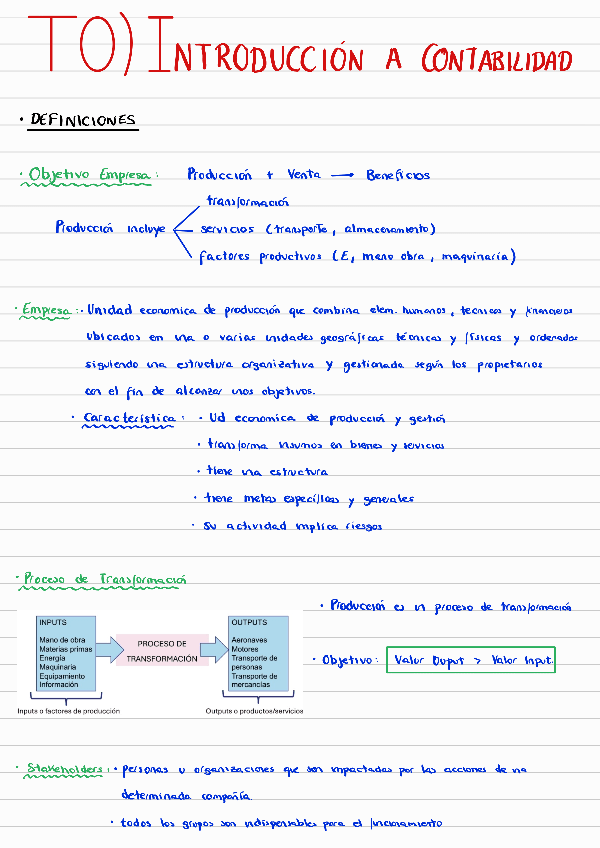 T0) INTRODUCCIÓN A CONTABILIDAD
• DEFINICIONES
• Objetivo Empresa: Producción + Venta → Beneficios
transformación
Producción incluye servicios (transporte, almacenamiento)
factores productivos (E, mano obra, maquinaria)
• Empresa: • Unidad economica de producción que combina elem. humanos, tecnicos y financieros
ubicados en una o varias unidades geográficas técnicas y físicas y ordenados
siguiendo una estructura organizativa y gestionada según los propietarios
con el fin de alcanzar unos objetivos.
• Característica: • Ud economica de producción y gestión
• transforma insumos en bienes y servicios
• tiene una estructura
• tiene metas específicas y generales
• su actividad implica riesgos
• Proceso de Transformación
• Producción es un proceso de transformación
INPUTS
Mano de obra
Materias primas
Energía
Maquinaria
Equipamiento
Información
PROCESO DE
TRANSFORMACIÓN
OUTPUTS
Aeronaves
Motores
Transporte de
personas
Transporte de
mercancías
Inputs o factores de producción
Outputs o productos/servicios
• Objetivo: Valor Ouput > Valor Input.
• Stakeholders: • personas u organizaciones que son impactadas por las acciones de una
determinada compañía.
• todos los grupos son indispensables para el funcionamiento